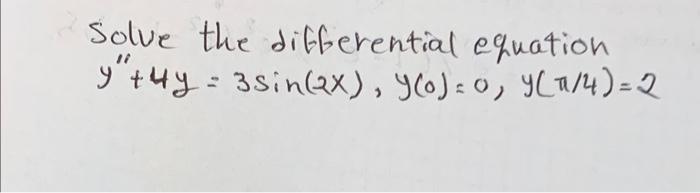 Solve the differential equation
y'' + 4y = 3sin(2x), y(0) = 0, y(π/4) = 2